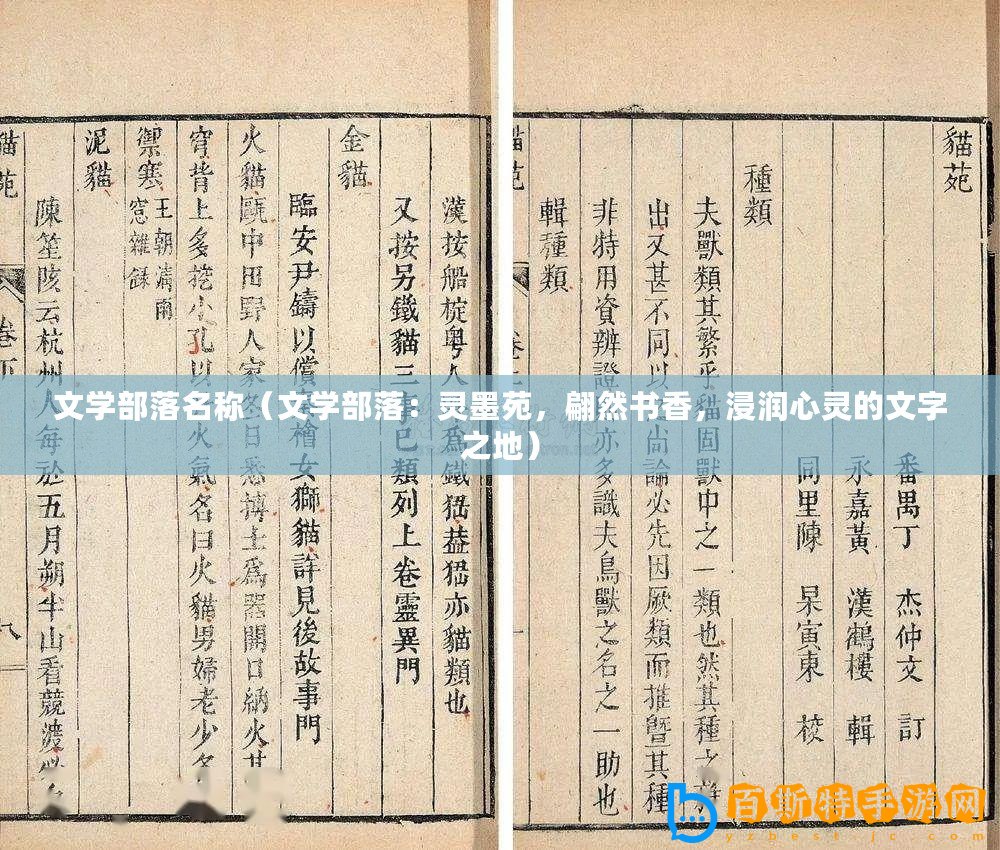 貓苑
番禺丁 杰仲文 訂
永嘉黃 漢鶴樓 輯
同里陳 杲寅東 校
種類
夫獸類其繁乎貓固獸中之一類也然其種之雜
出又甚不同以尚論必先因厥類而推暨其種
非特用資辨證多識夫鳥獸之名之一助也
輯種類
貓苑
漢按船椗粵人爲鐵猫蓋猫亦貓類也
又按另鐵貓三事已類列上卷靈異門
金貓
臨安尹鑄以償檜女獅貓詳見後故事門
火貓甌中田野人家冬日悉摶土爲器開口納火其
穹背上多挖小孔以火氣名曰火貓男婦老少各
禦寒 王朝清雨
窓雜錄
泥貓
陳笙陔云杭州人每於五月朔半山看競渡必
貓苑
卷下
八
文学部落名称（文学部落：灵墨苑，翩然书香，浸润心灵的文字
之地）
百斯特手游网
yzbestkjc.com